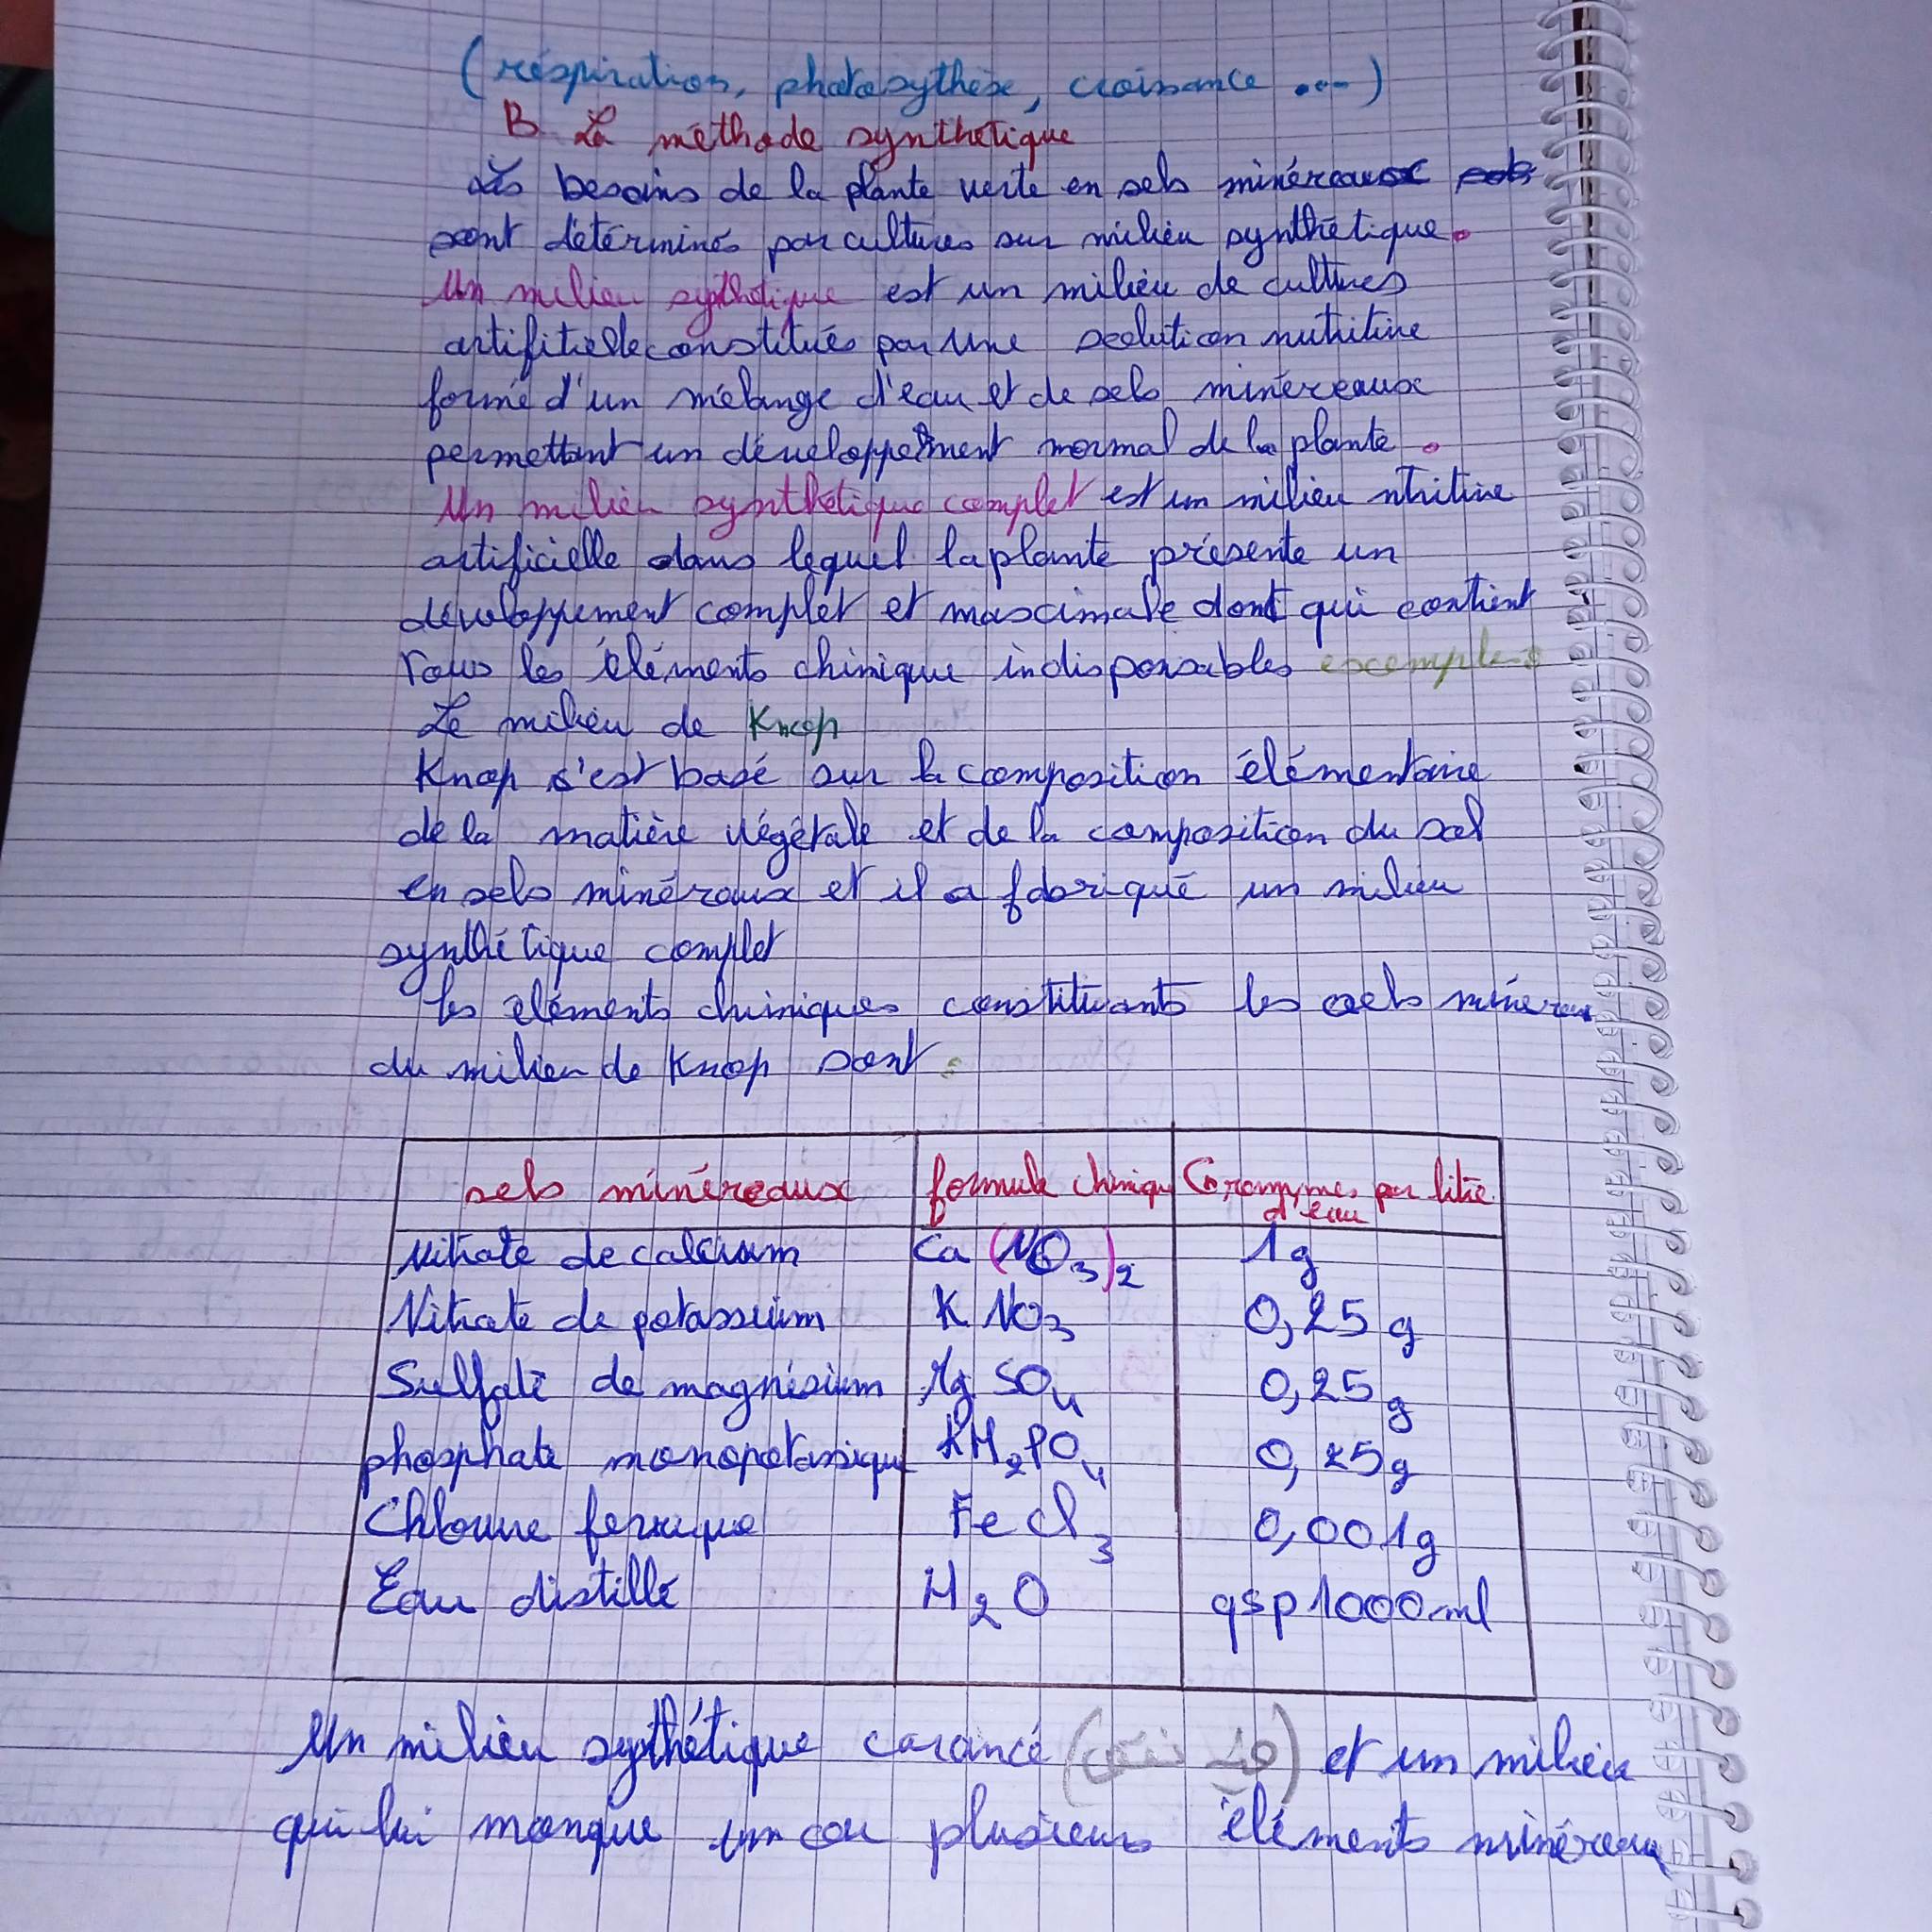 (réspiration, photosythèse, croissance ...)
B La méthode synthétique
Les besoins de la plante verte en sels minéreaux
sont détérminés par cultures sur milieu synthétique.
Un milieu sythétique est un milieu de cultures
artifitielle constitués par une solution nutritive
formé d'un mélange d'eau et de sels minéreaux
permettant un développement normal de la plante.
Un milieu synthétique complet est un milieu ntritive
artificielle dans lequel la plante présente un
développement complet et maximale dont qui contient
tous les éléments chimique indisponsables exemple :
Le milieu de Knop
Knop s'est basé sur la composition élémentaire
de la matière végétale et de la composition du sol
en sels minéraux et il a fabriqué un milieu
synthétique complet
les eléments chimiques constituants les sels minéreau
du milieu de Knop sont :
sels minéreaux formule chimique par litre
d'eau
Nitrate de calcium Ca (NO3)2 1g
Nitrate de potassium K NO3 0,25 g
Sulfate de magnésium Mg SO4 0,25 g
phosphate monopotassique KH2PO4 0,25g
Chlorure ferrique Fe Cl3 0,001g
Eau distillé H2O qsp 1000 ml
Un milieu sythétique carancé ( ) et un milieu
qui lui manque un ou plusieurs éléments minéreau